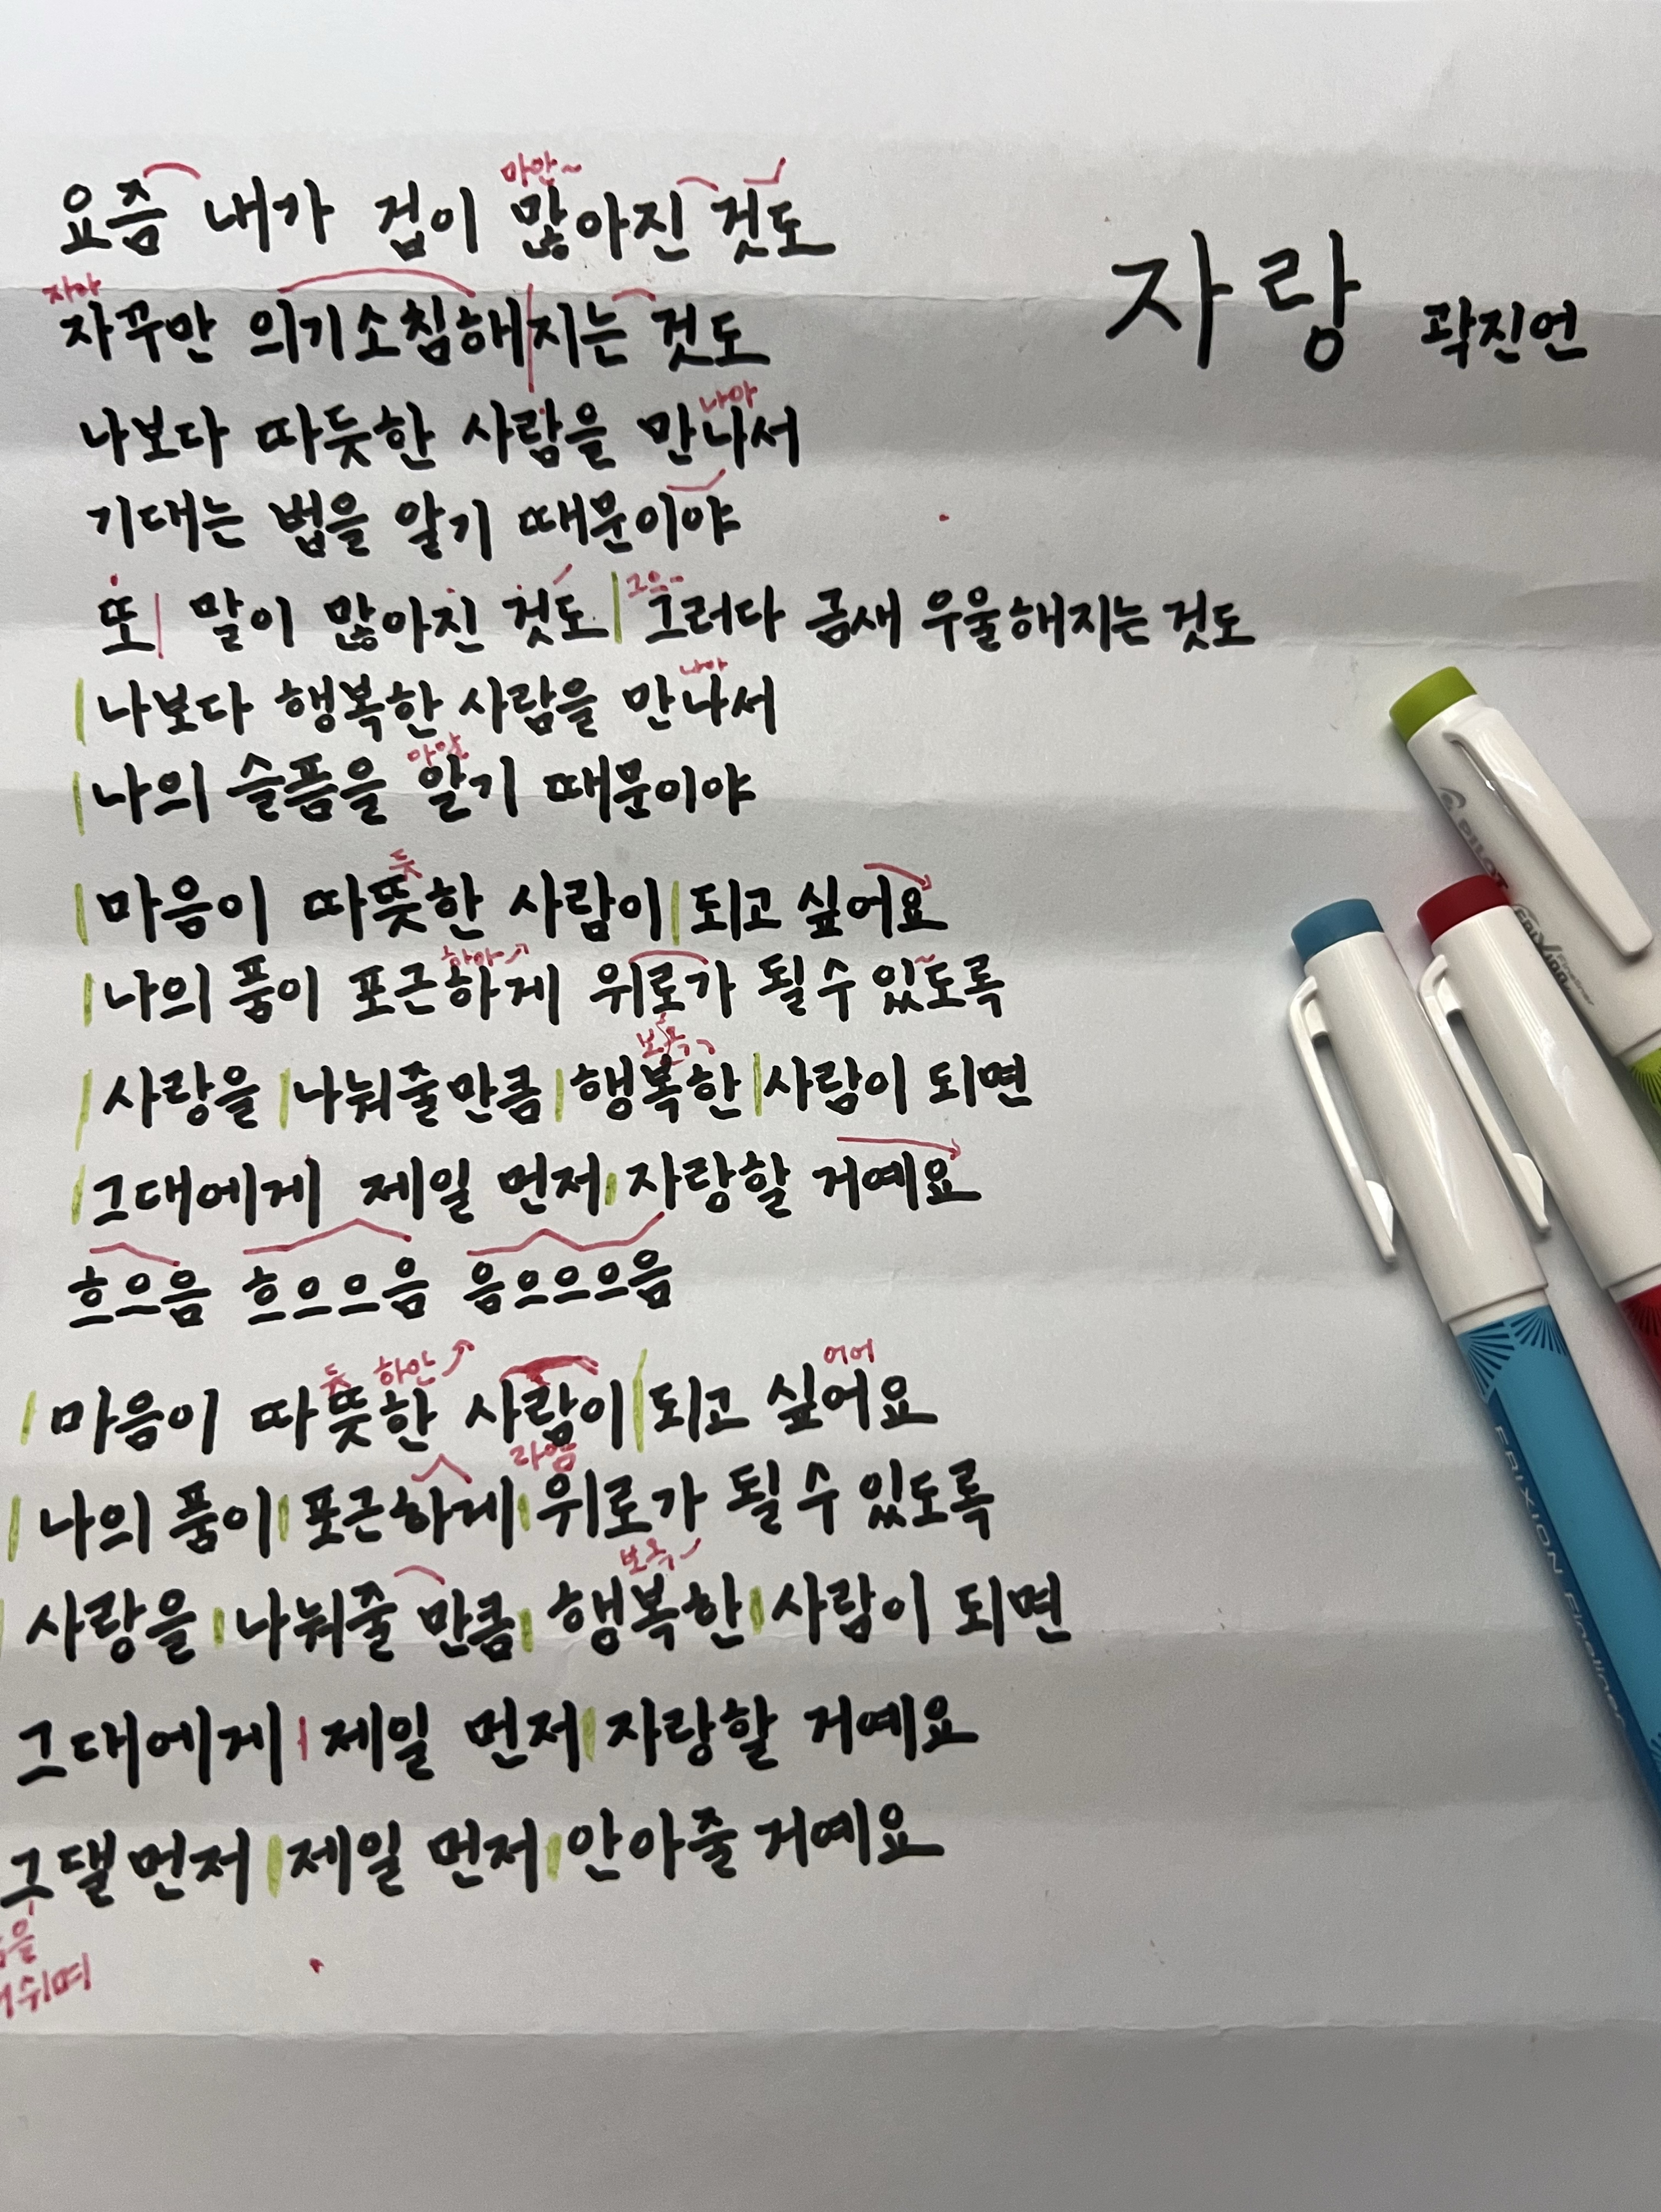 자랑 곽진언
마안~
요즘 내가 겁이 많아진 것도
자아
자꾸만 의기소침해지는 것도
나아
나보다 따듯한 사람을 만나서
기대는 법을 알기 때문이야
그으~
또 말이 많아진 것도 그러다 금새 우울해지는 것도
나아
나보다 행복한 사람을 만나서
아알
나의 슬픔을 알기 때문이야
듯
마음이 따뜻한 사람이 되고 싶어요
하아
나의 품이 포근하게 위로가 될 수 있도록
보옥
사랑을 나눠줄만큼 행복한 사람이 되면
그대에게 제일 먼저 자랑할 거예요
흐으음 흐으으음 음으으으음
듯 하안 어어
마음이 따뜻한 사람이 되고 싶어요
라암
나의 품이 포근하게 위로가 될 수 있도록
보옥
사랑을 나눠줄 만큼 행복한 사람이 되면
그대에게 제일 먼저 자랑할 거예요
그댈 먼저 제일 먼저 안아줄 거예요
PILOT
FRIXION Fineliner
FRIXION Fineliner